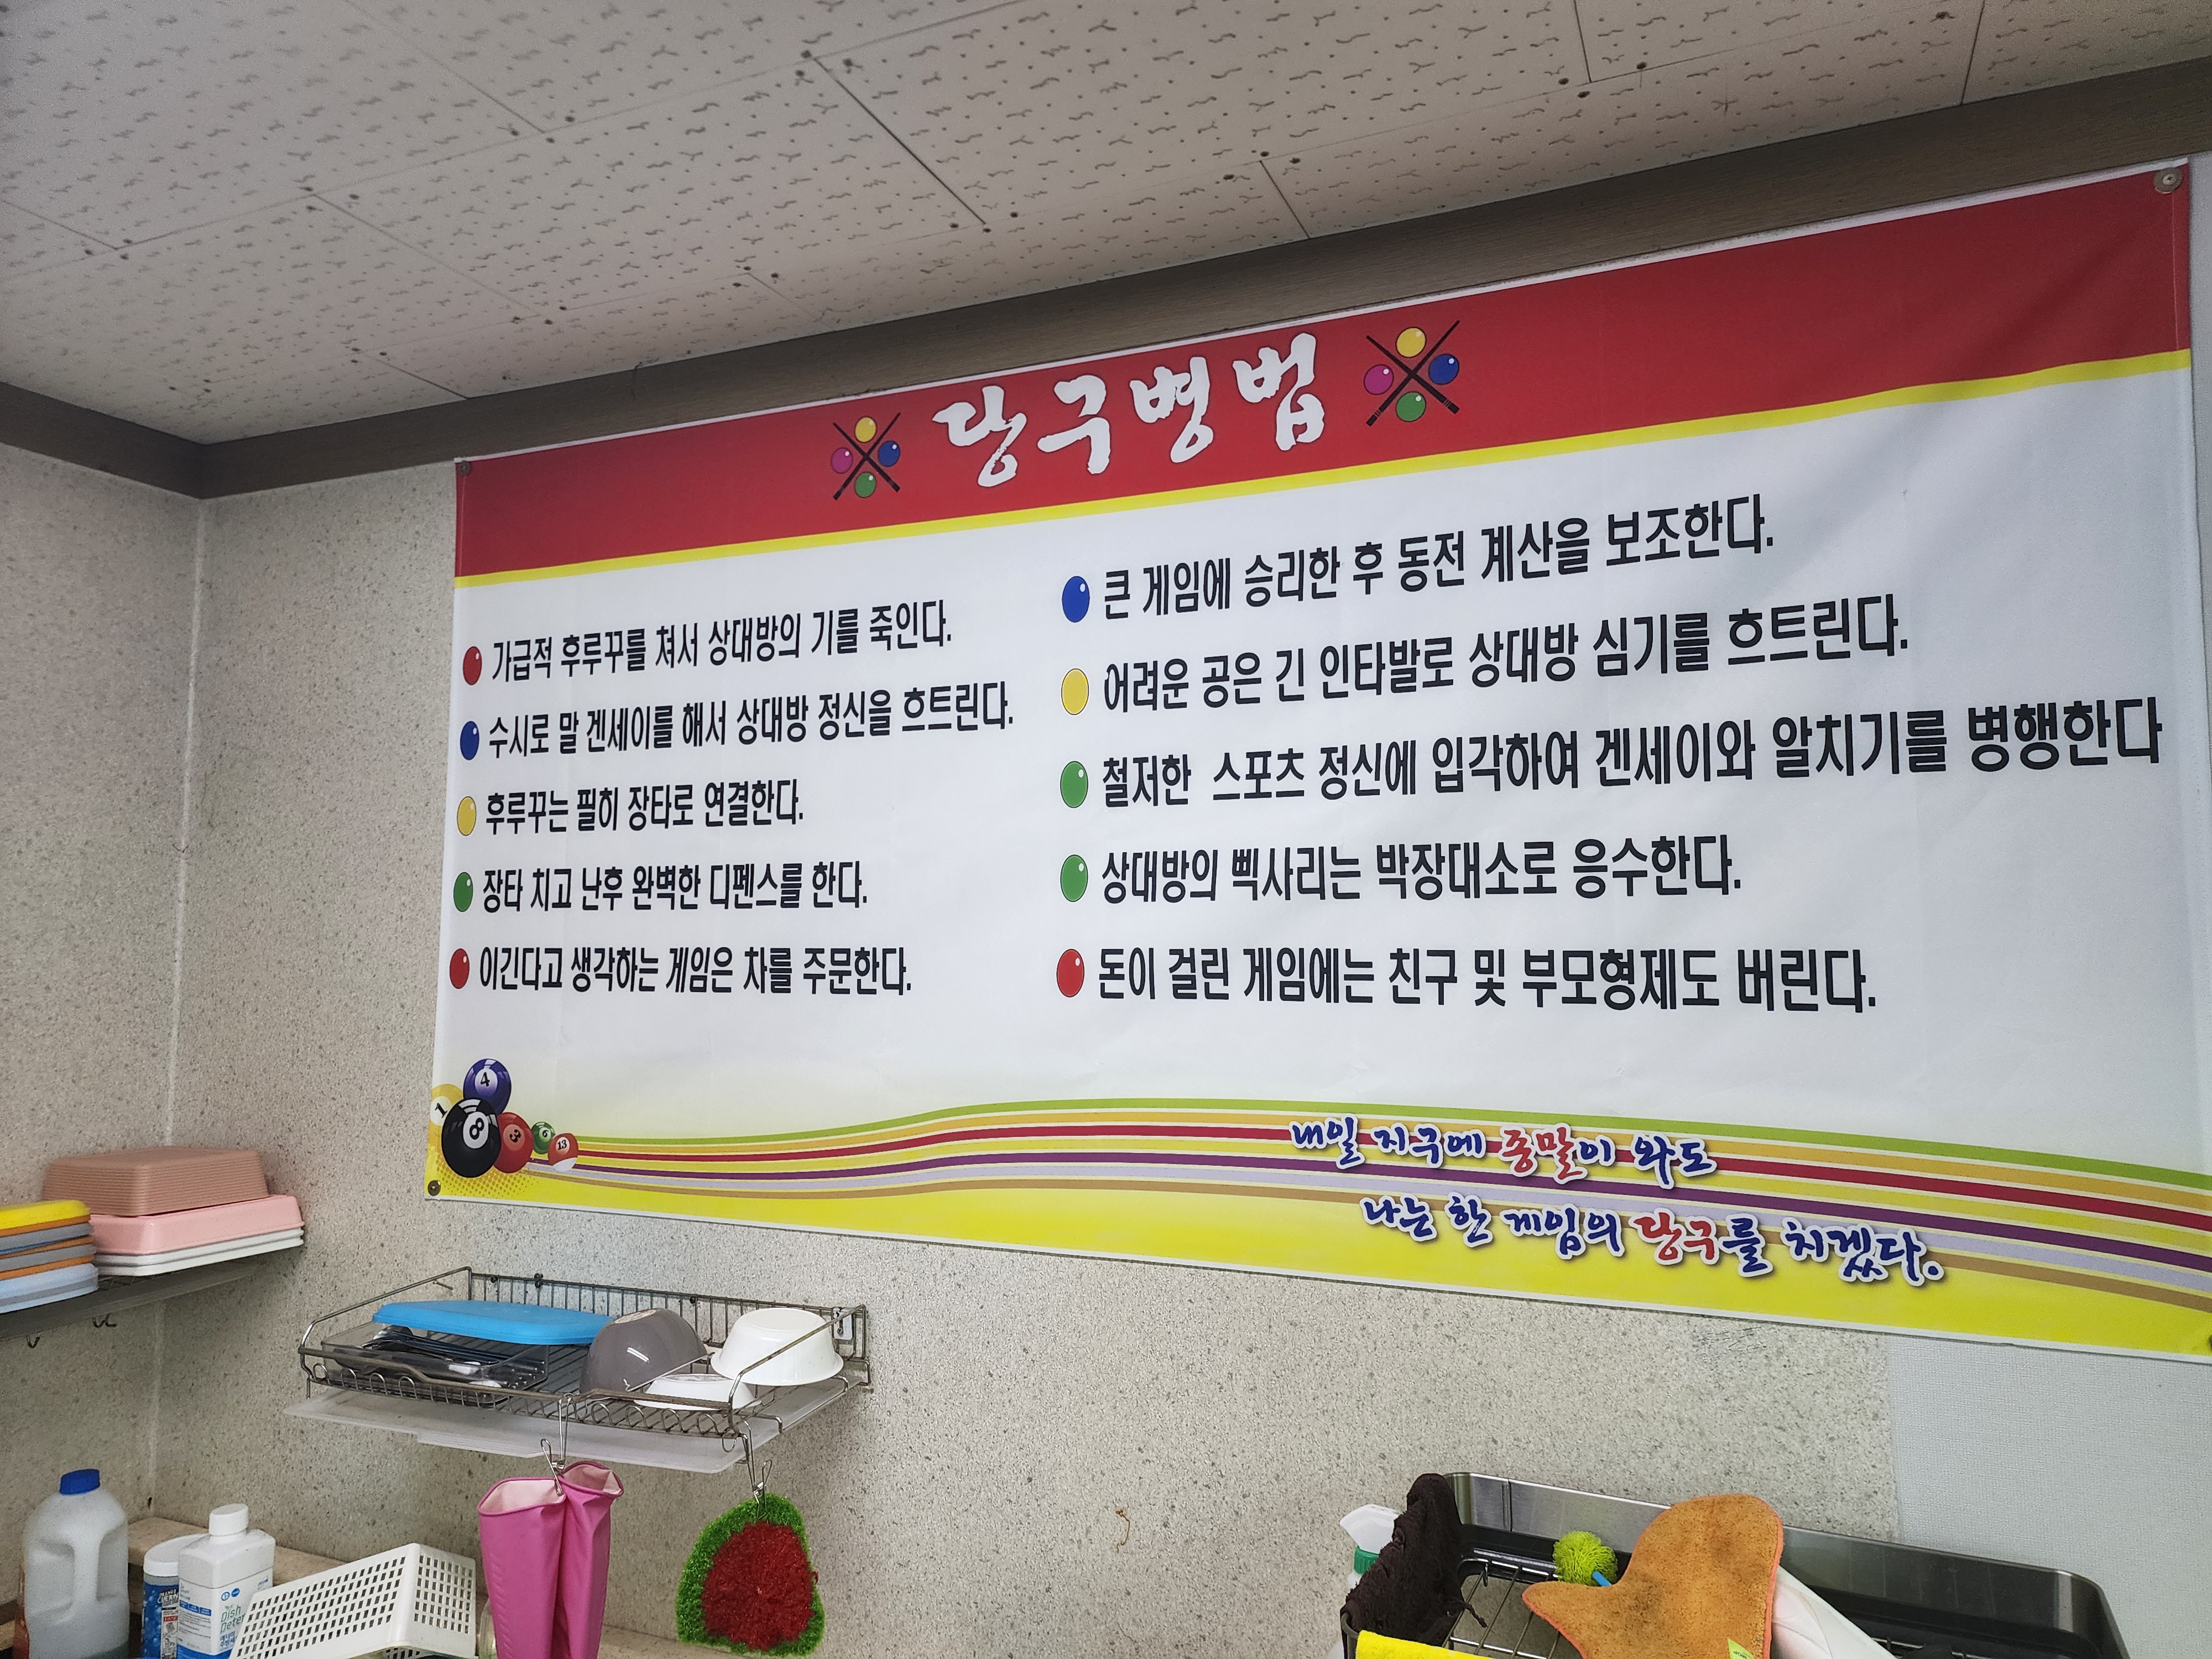 당구병법
가급적 후루꾸를 쳐서 상대방의 기를 죽인다.
수시로 말 겐세이를 해서 상대방 정신을 흐트린다.
후루꾸는 필히 장타로 연결한다.
장타 치고 난후 완벽한 디펜스를 한다.
이긴다고 생각하는 게임은 차를 주문한다.
큰 게임에 승리한 후 동전 계산을 보조한다.
어려운 공은 긴 인타발로 상대방 심기를 흐트린다.
철저한 스포츠 정신에 입각하여 겐세이와 알치기를 병행한다
상대방의 삑사리는 박장대소로 응수한다.
돈이 걸린 게임에는 친구 및 부모형제도 버린다.
4
1
8
3
6
13
내일 지구에 종말이 와도
나는 한 게임의 당구를 치겠다.
Dish